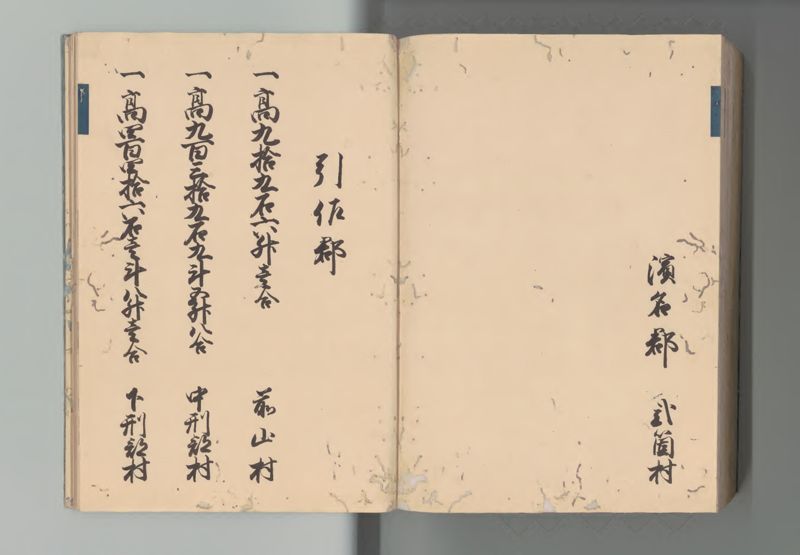 濱名郡 貳箇村
引佐郡
一高九拾九石六升壹合 前山村
一高九百三拾九石九斗五升八合 中刑部村
一高四百四拾六石壹斗八升壹合 下刑部村